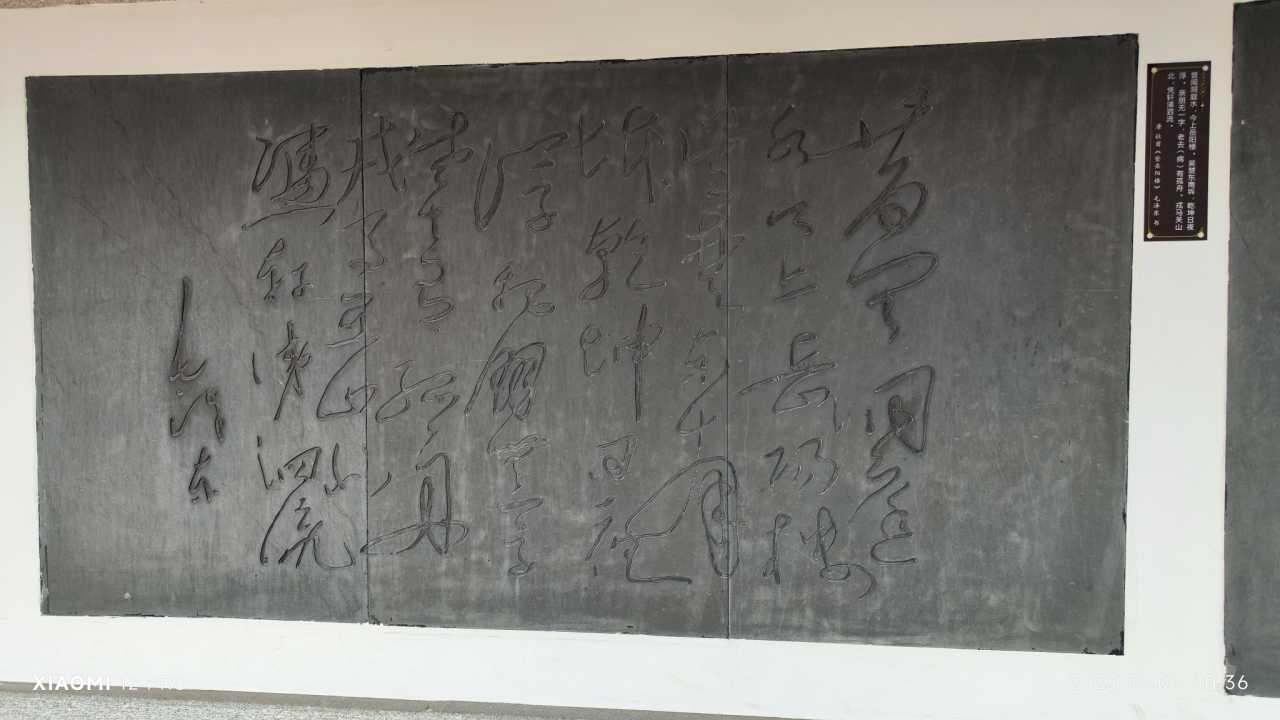 昔闻洞庭
水今上岳阳楼
吴楚东南
坼乾坤日夜
浮亲朋无一字
老去有孤舟
戎马关山北
凭轩涕泗流
毛泽东
昔闻洞庭水，今上岳阳楼。吴楚东南坼，乾坤日夜
浮。亲朋无一字，老去（病）有孤舟。戎马关山
北，凭轩涕泗流。
唐 杜甫《登岳阳楼》 毛泽东 书
XIAOMI 12